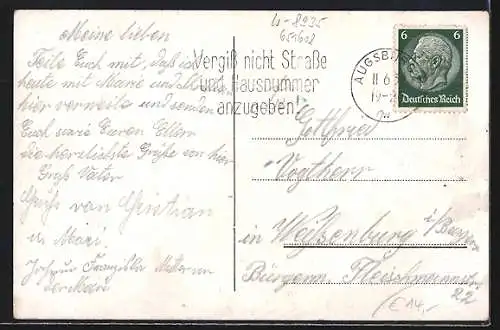 4-8935
65/608
Meine lieben
Teile Euch mit, daß ich
heute mit Marie und
hier verweile und senden
Euch sowie Euren Eltern
die herzlichste Grüße von hier
Gruß Vater
Grüße von Christian
u. Mari.
Vergiß nicht Straße
und Hausnummer
anzugeben
AUGSB
11 6
19-2
6 6
Deutsches Reich
Gottfried
Vogtherr
in Weißenburg i/Bayern
Bürgerm. Fleischmannstr.
22
€ 14,-